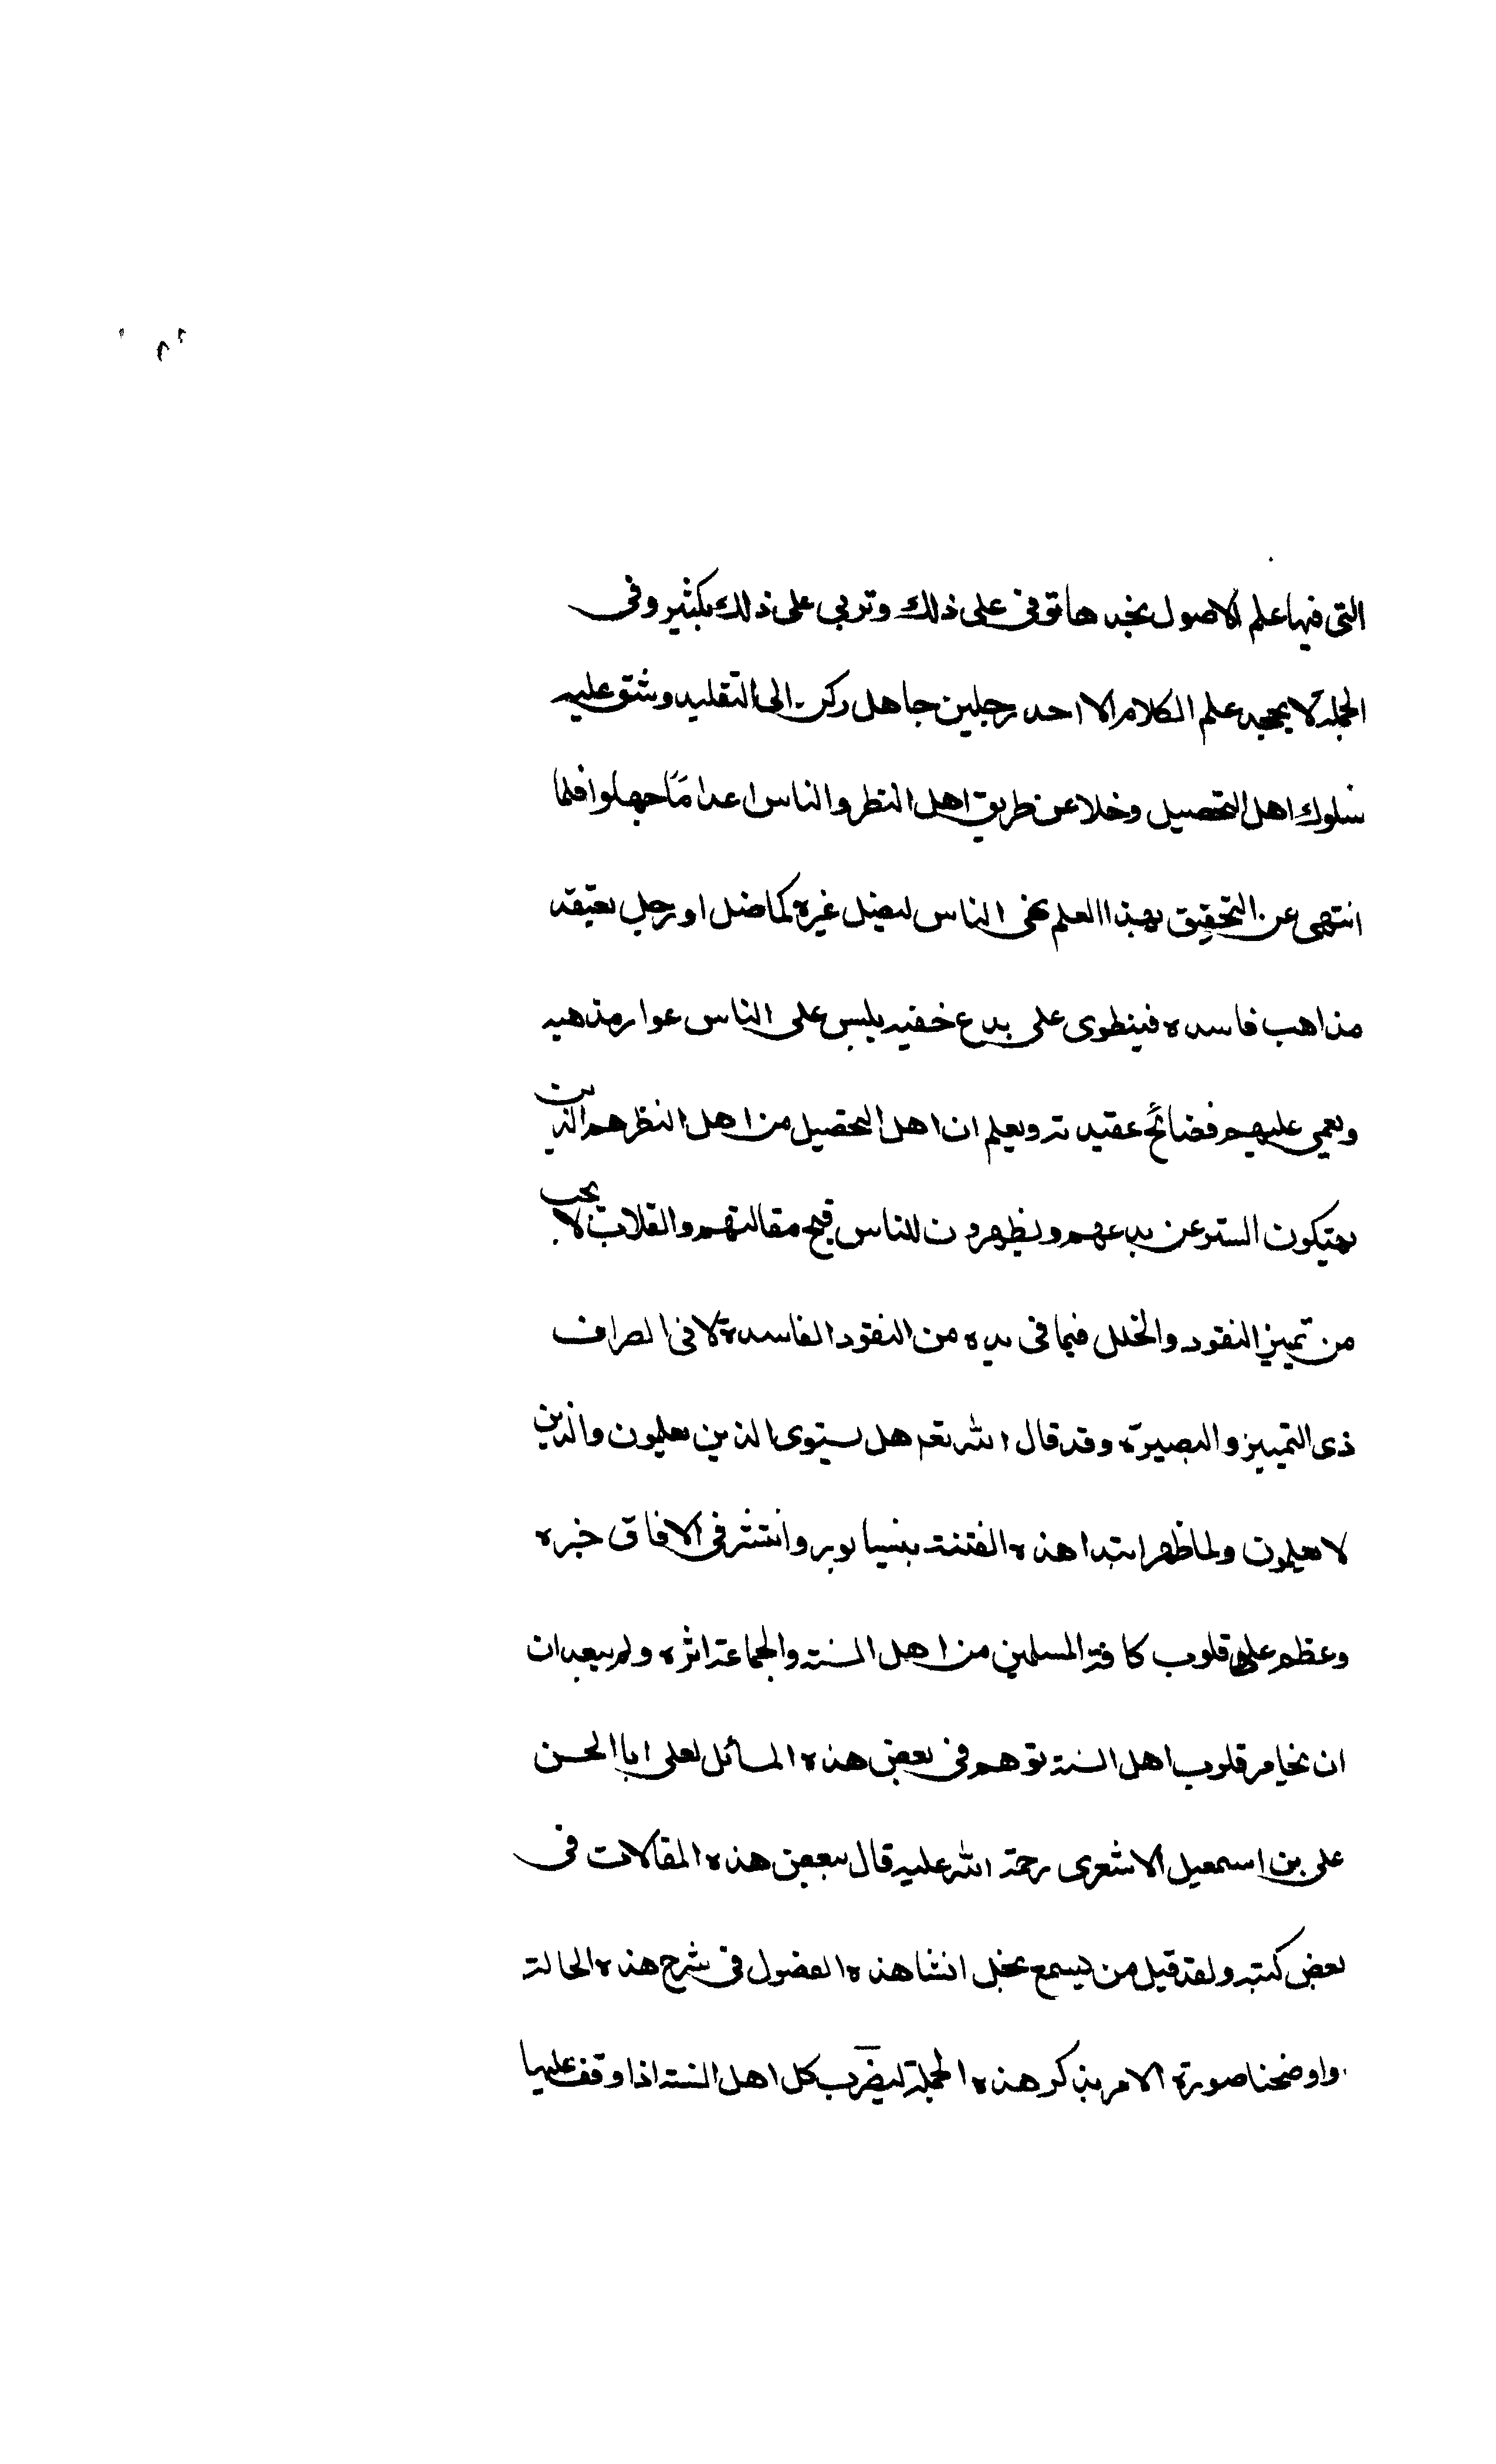 التى فيها علم الاصول نجدها توفى على ذلك وتربى على ذلك بكثير وفى
الجملة لا يجحد علم الكلام الا احد رجلين جاهل ركن الى التقليد وشق عليه
سلوك اهل التحصيل وخلا عن طريق اهل النظر والناس اعدا ما جهلوا فلما
انتهى عن التحقيق بهذا العلم نهى الناس ليضل غيره كما ضل او رجل يعتقد
مذاهب فاسده فينطوى على بدع خفيه يلبس على الناس عوار مذهبه
ويعمى عليهم فضائح عقيدته ويعلم ان اهل التحصيل من اهل النظر هم الذين
يهتكون الستر عن بدعهم ويظهرون للناس قبح مقالتهم والقلاب لا يحب
من تميز النقود والخلل فيما فى يده من النقود الفاسدة لا فى الصراف
ذى التمييز والبصيرة وقد قال الله تعم هل يستوى الذين يعلمون والذين
لا يعلمون ولما ظهر ابتدا هذه الفتنة بنيسابور وانتشر فى الافاق خبره
وعظم على قلوب كافة المسلمين من اهل السنة والجماعة اثره ولم يبعد ان
ان يخامر قلوب اهل السنة توهم فى بعض هذه المسائل لعل ابا الحسن
على بن اسمعيل الاشعرى رحمة الله عليه قال ببعض هذه المقالات فى
بعض كتبه ولقد قيل من يسمع يخل انشا هذه الفصول فى شرح هذه الحالة
واوضحنا صورة الامر بذكر هذه الجملة ليضرب كل اهل السنة اذا وقف عليها